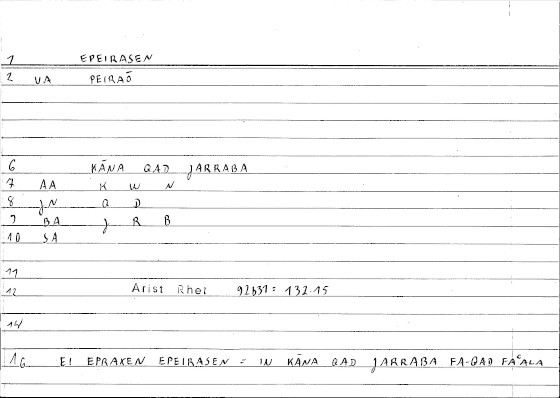 1 EPEIRASEN
2 VA PEIRAŌ
6 KĀNA QAD JARRABA
7 AA K W N
8 JN Q D
9 BA J R B
10 SA
11
12 Arist Rhet 92b31 : 132.15
14
16 EI EPRAXEN EPEIRASEN = IN KĀNA QAD JARRABA FA-QAD FAʿALA